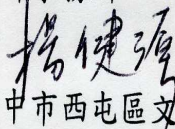 楊健源
中市西屯區文